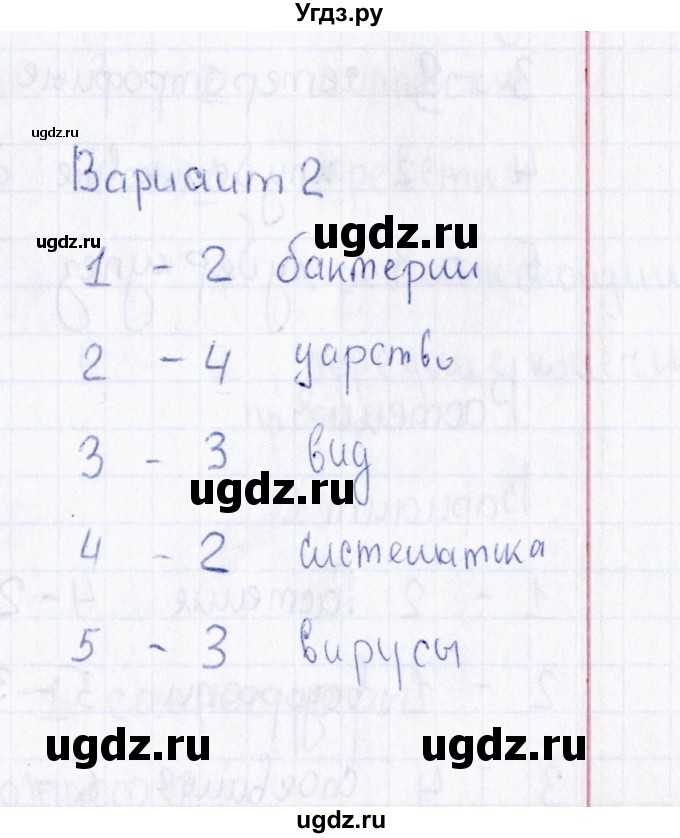 Угдз.ру
ugdz.ru
Вариант 2
ugdz.ru
ugdz.ru
1 - 2 бактерии
2 - 4 царство
3 - 3 вид
ugdz.ru
4 - 2 систематика
5 - 3 вирусы
ugdz.ru
ugdz.ru
ugdz.ru